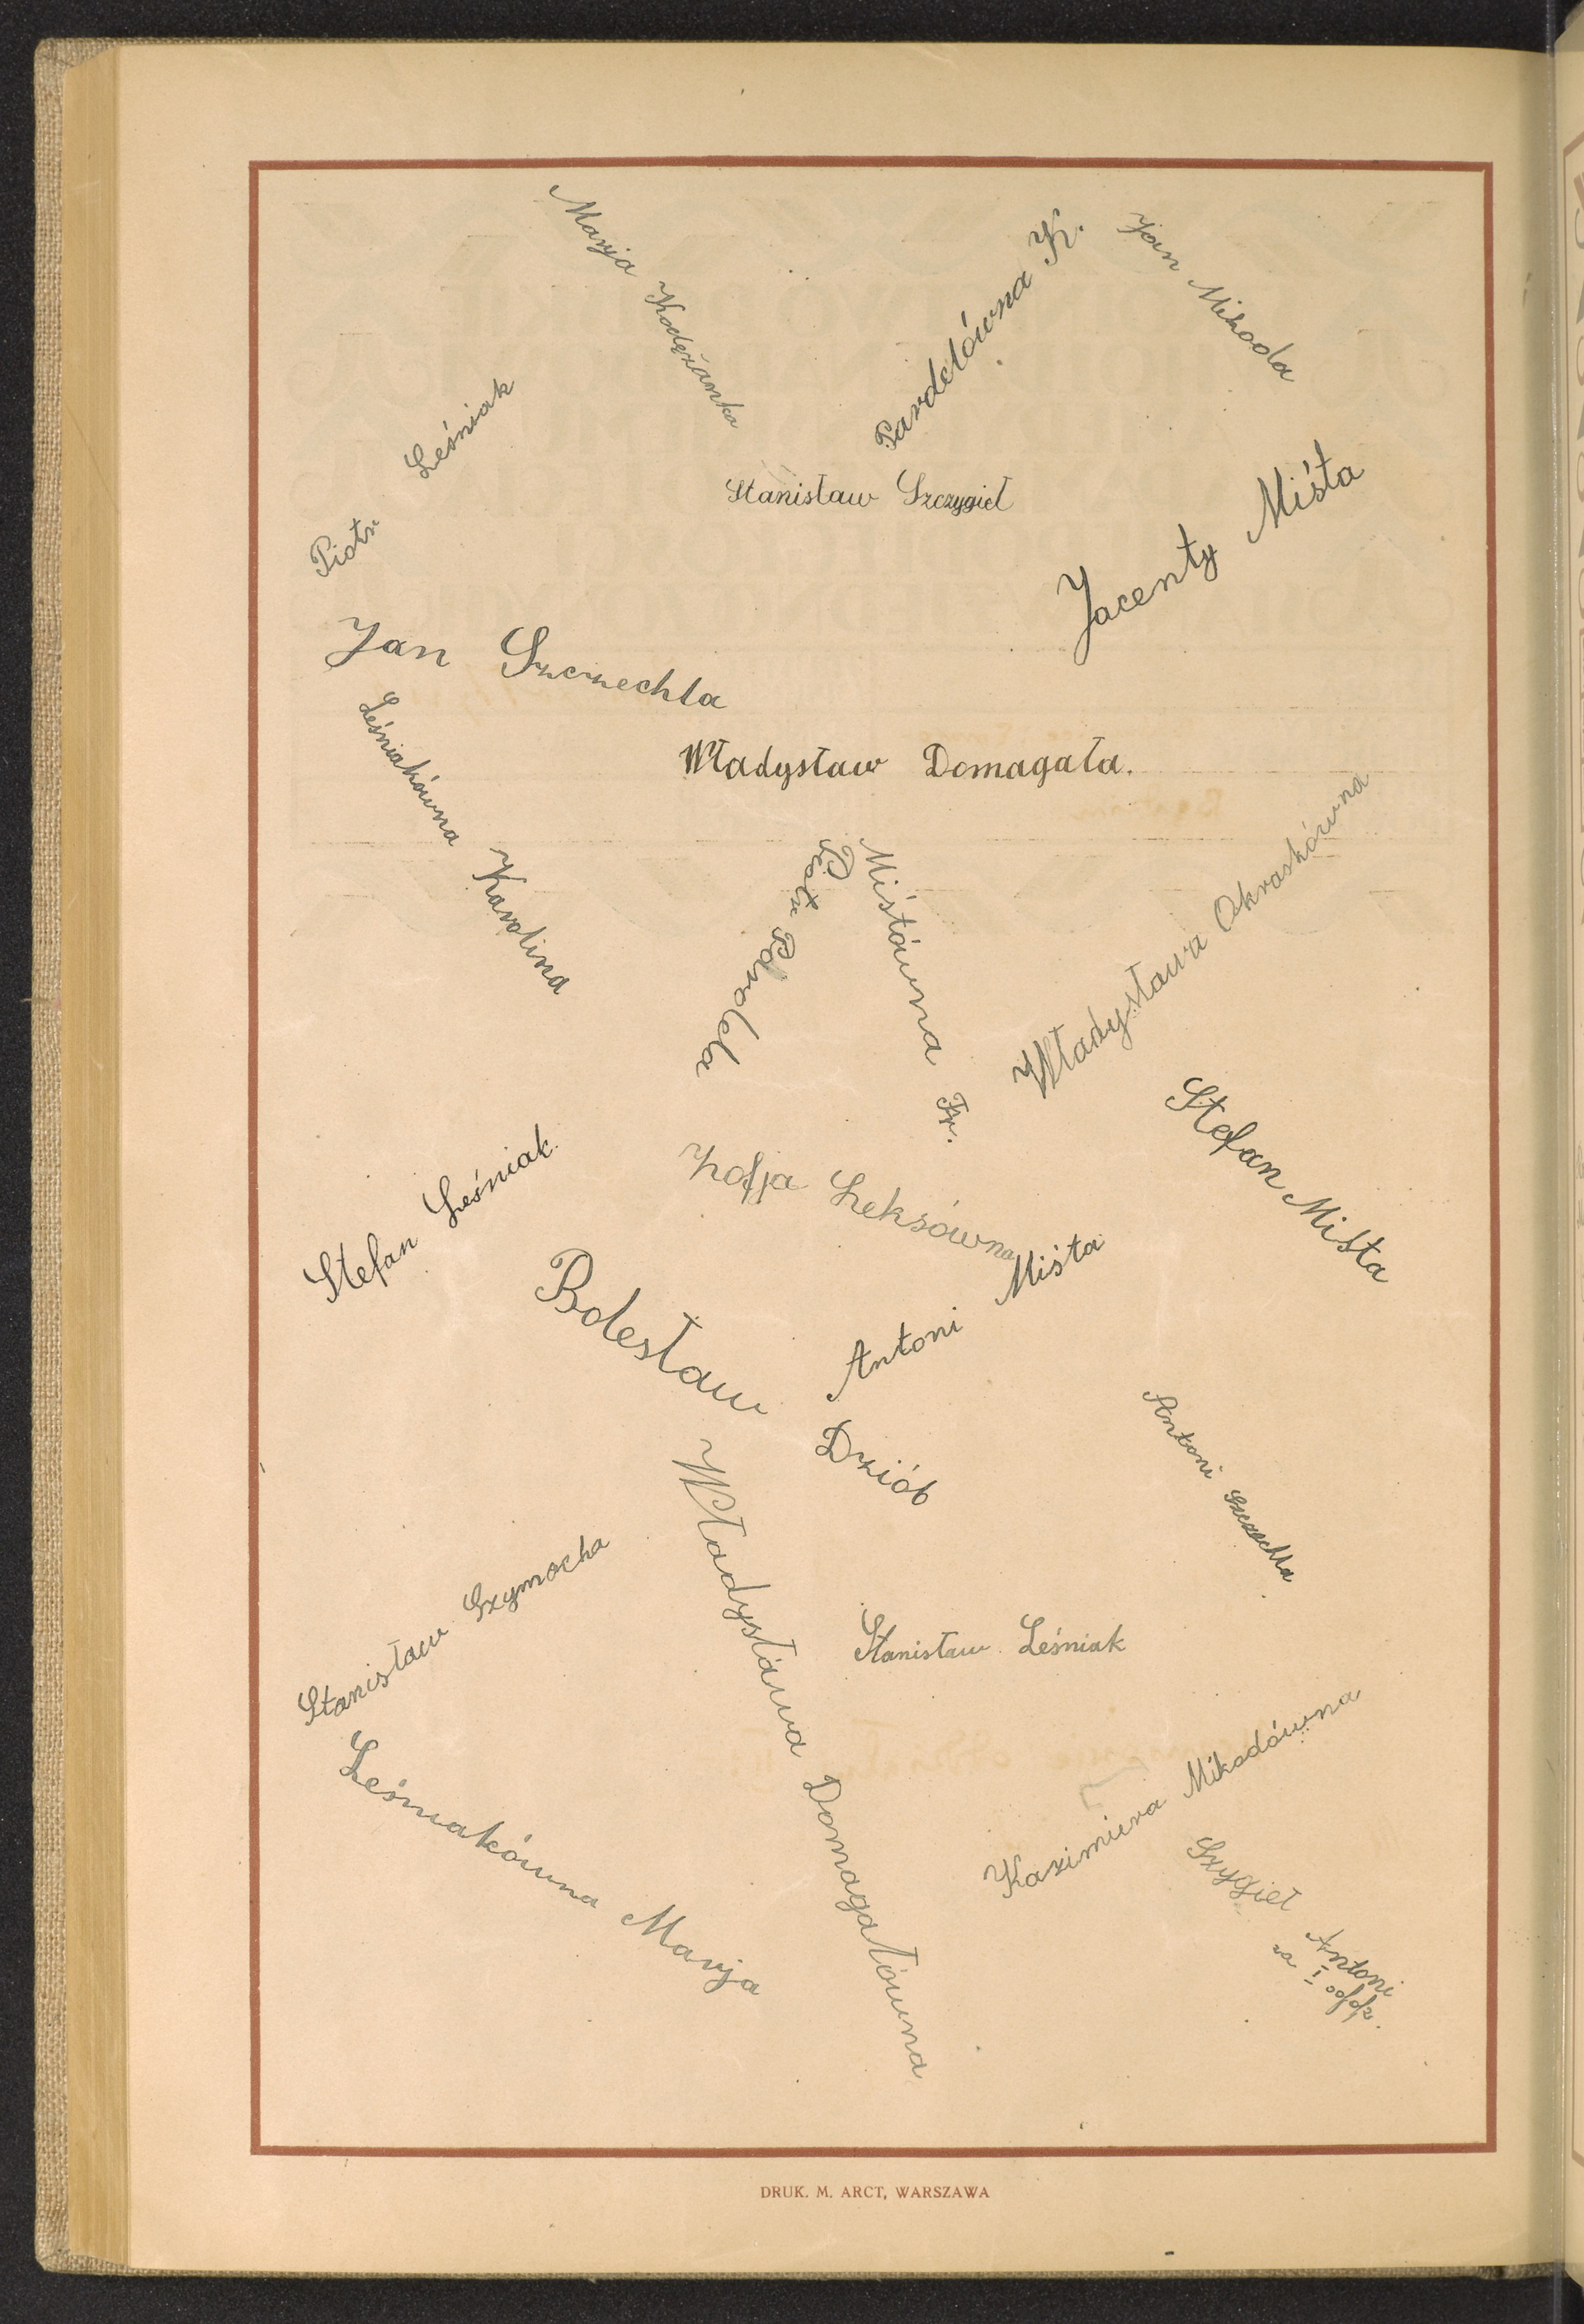 Marja Kodężanka
Pardelówna K.
Jan Mikoda
Piotr Leśniak
Stanisław Szczygieł
Jacenty Miśta
Jan Szczechla
Leśniakówna Karolina
Władysław Domagała.
Piotr
Miśtówna Fr.
Władysława Okraskówna
Stefan Miśta
Stefan Leśniak.
Zofja Leksówna
Antoni Miśta
Bolesław Dziób
Antoni Szczechla
Stanisław Szymocha
Władysława Domagałówna
Stanisław Leśniak
Kazimiera Mikodówna
Leśniakówna Marja
Szygieł Antoni
DRUK. M. ARCT, WARSZAWA